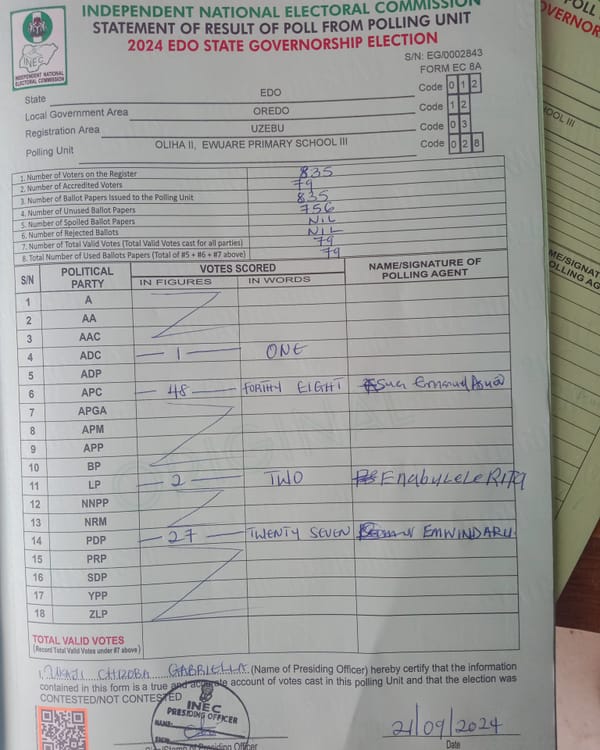 INDEPENDENT NATIONAL ELECTORAL COMMISSION
STATEMENT OF RESULT OF POLL FROM POLLING UNIT
2024 EDO STATE GOVERNORSHIP ELECTION
INEC
INDEPENDENT NATIONAL
ELECTORAL COMMISSION
S/N: EG/0002843
FORM EC 8A
State EDO Code 0 1 2
Local Government Area OREDO Code 1 2
Registration Area UZEBU Code 0 3
Polling Unit OLIHA II, EWUARE PRIMARY SCHOOL III Code 0 2 8
1. Number of Voters on the Register 835
2. Number of Accredited Voters 79
3. Number of Ballot Papers Issued to the Polling Unit 835
4. Number of Unused Ballot Papers 756
5. Number of Spoiled Ballot Papers NIL
6. Number of Rejected Ballots NIL
7. Number of Total Valid Votes (Total Valid Votes cast for all parties) 79
8. Total Number of Used Ballots Papers (Total of #5 + #6 + #7 above) 79
S/N POLITICAL PARTY VOTES SCORED NAME/SIGNATURE OF POLLING AGENT
IN FIGURES IN WORDS
1 A
2 AA
3 AAC
4 ADC 1 ONE
5 ADP
6 APC 48 FORTHY EIGHT
7 APGA
8 APM
9 APP
10 BP
11 LP 2 TWO Enabulele RITA
12 NNPP
13 NRM
14 PDP 27 TWENTY SEVEN
15 PRP
16 SDP
17 YPP
18 ZLP
TOTAL VALID VOTES
(Record Total Valid Votes under #7 above)
ORIGINAL
I, GABRIELLA (Name of Presiding Officer) hereby certify that the information
contained in this form is a true and accurate account of votes cast in this polling Unit and that the election was
CONTESTED/NOT CONTESTED
INEC
PRESIDING OFFICER
NAME:
SIGN:
21/09/2024
Date
of Presiding Officer
OOL III